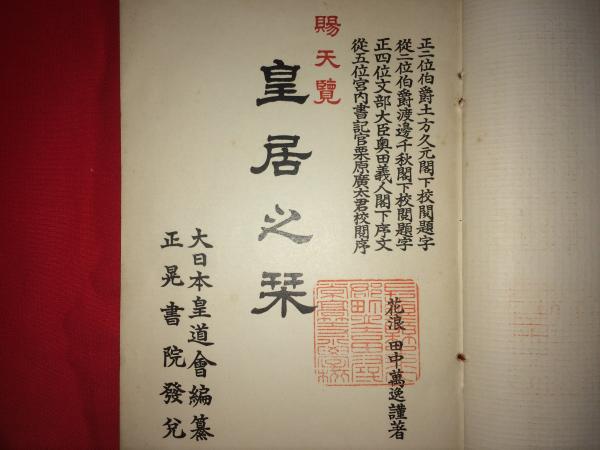 正二位伯爵土方久元閣下校閲題字
從二位伯爵渡邊千秋閣下校閲題字
正四位文部大臣奥田義人閣下序文
從五位宮内書記官栗原廣太君校閲序
賜天覽
皇居之栞
花浪 田中萬逸謹著
大日本皇道會編纂
正晃書院發兌